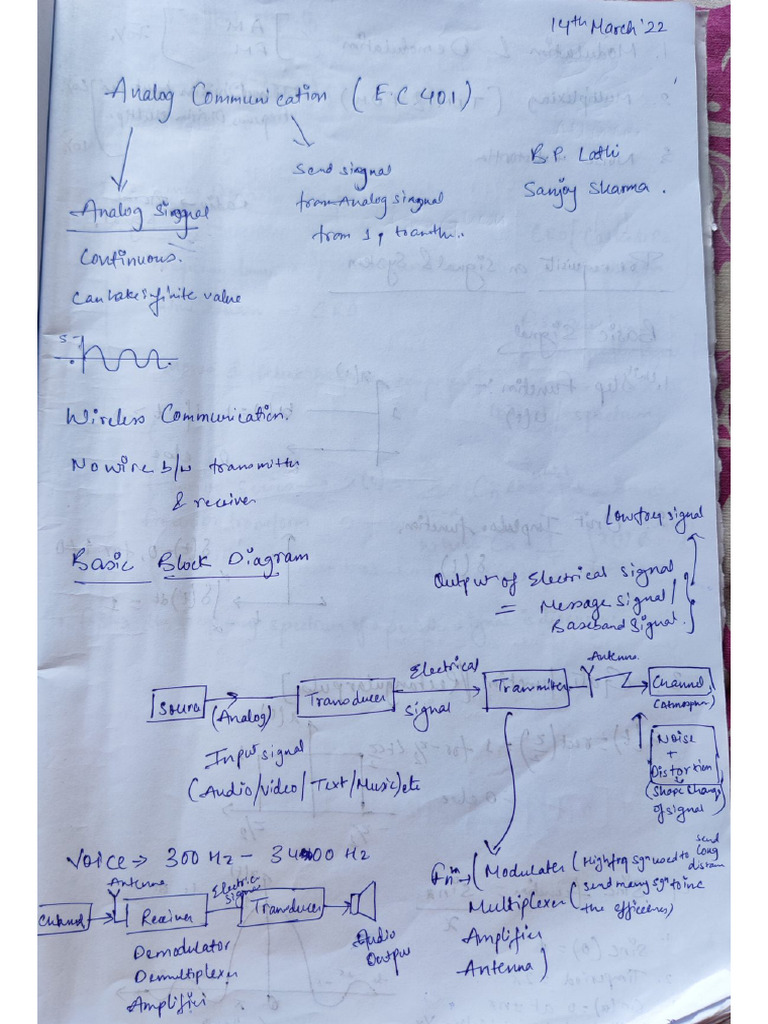 14th March'22
Analog Communication (E.C 401)
Send singnal
from Analog singnal
from 1,
B.P. Lathi
Sanjoy Sharma.
Analog Singnal
Continuous.
Can take infinite value
5
Wireless Communication.
No wire b/w transmitter
& receiver
Basic Block Diagram
Low freq signal
Output of Electrical signal
= Message signal /
Baseband Signal.
Source
(Analog)
Transducer
Electrical
signal
Transmiter
Antenna
Channel
(Atmospher)
Input signal
(Audio/Video/Text/Music) etc
Noise
+
Distortion
(Shape Change
of signal)
Voice => 300 Hz - 3400 Hz
Fn → (Modulater (High freq sgn used to send long distam
Multiplexer (send many sgn to inc
the efficiency)
Amplifier
Antenna)
Channel
Antenna
Receiver
Electric
Signal
Transducer
Audio
Output
Demodulator
Demultiplexer
Amplifier